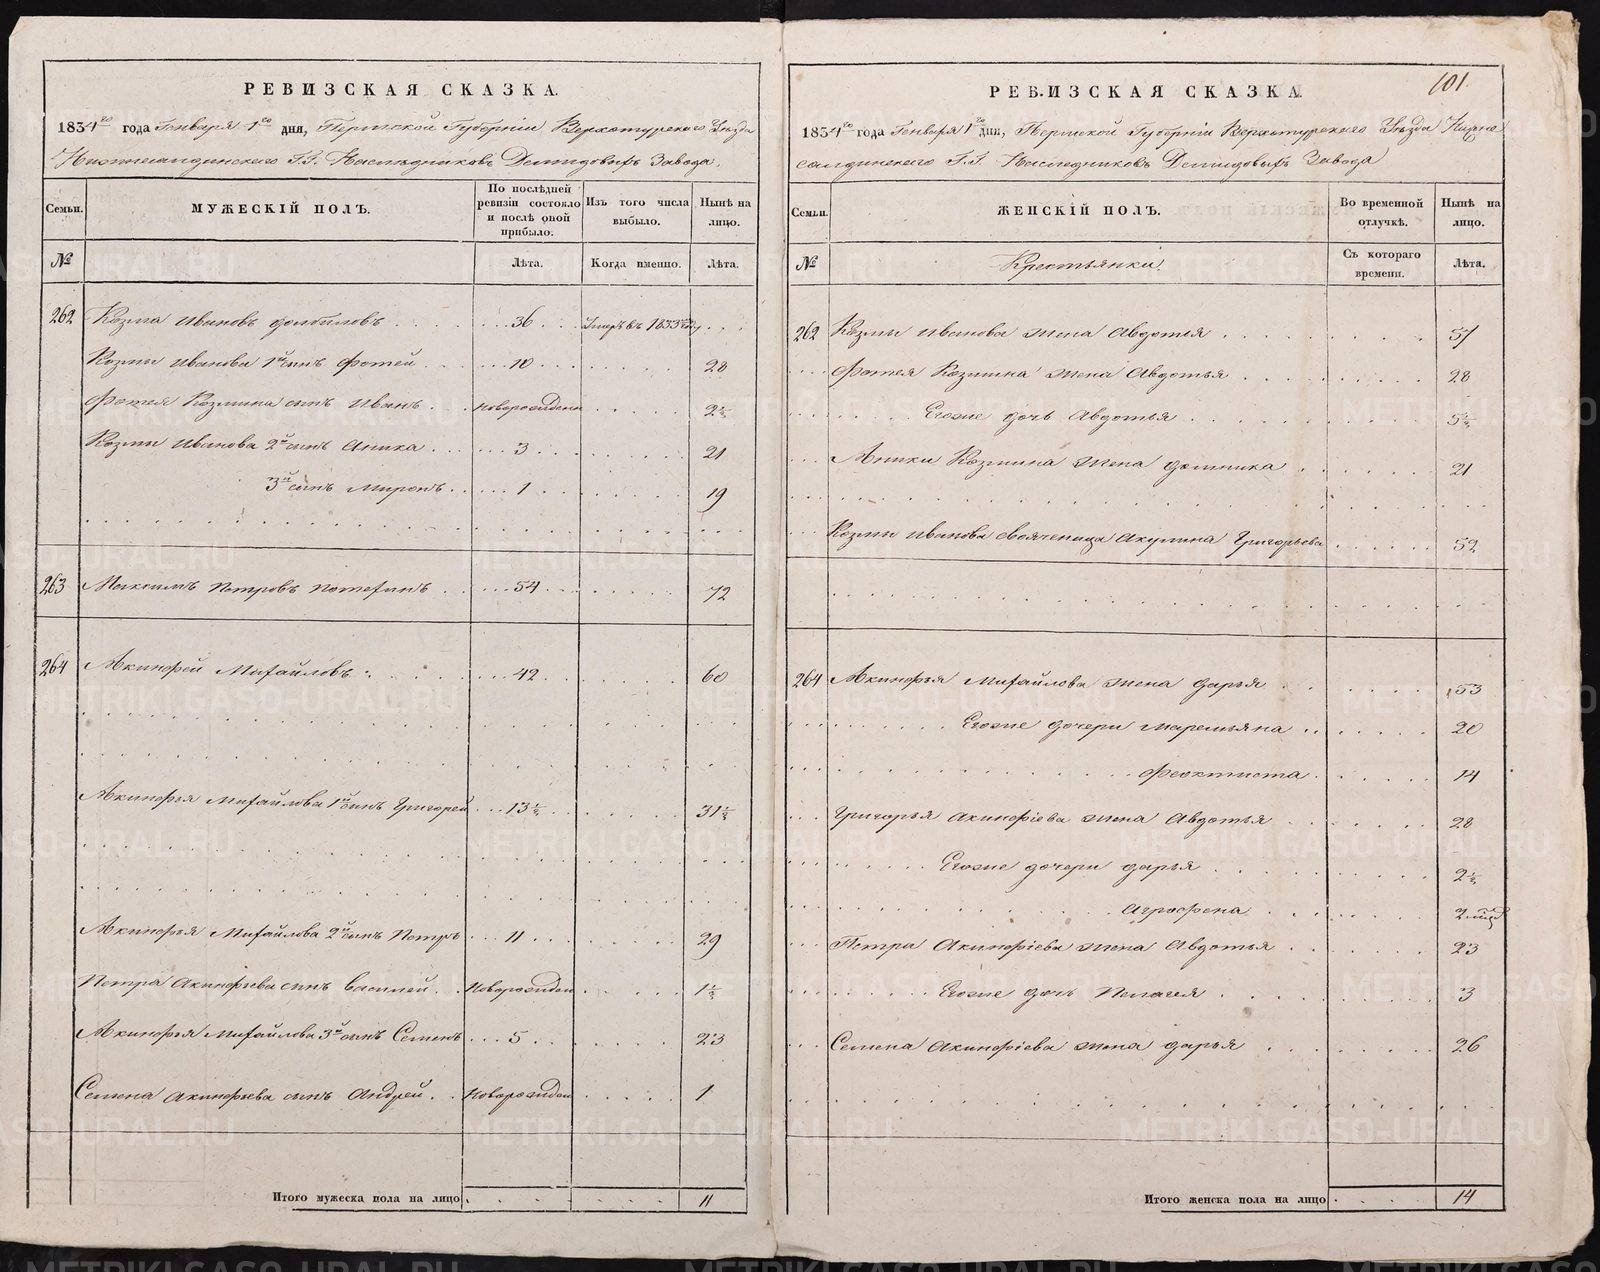 РЕВИЗСКАЯ СКАЗКА.
1834го года Генваря 1го дня, Пермской Губерніи Верхотурскаго Уѣзда
Нижнесалдинскаго Г.Г. Наслѣдниковъ Демидовыхъ Завода.
Семьи. МУЖЕСКІЙ ПОЛЪ. По послѣдней ревизіи состояло и послѣ оной прибыло. Изъ того числа выбыло. Нынѣ на лицо.
№ Лѣта. Когда именно. Лѣта.
262 Козма Ивановъ 36 Умеръ въ 1833 году
Козмы Иванова 1й сынъ Фотей 10 28
Фотея Козмина сынъ Иванъ новорожденъ 2½
Козмы Иванова 2й сынъ Аника 3 21
3й сынъ Миронъ 1 19
263 Максимъ Петровъ Потехинъ 54 72
264 Акинфей Михайловъ 42 60
Акинфья Михайлова 1й сынъ Григорей 13½ 31½
Акинфья Михайлова 2й сынъ Петръ 11 29
Петра Акинфьева сынъ Василей новорожден 1½
Акинфья Михайлова 3й сынъ Семенъ 5 23
Семена Акинфьева сынъ Андрей новорожден 1
Итого мужеска пола на лицо 11
101.
РЕВИЗСКАЯ СКАЗКА.
1834го года Генваря 1го дни, Пермской Губерніи Верхотурскаго Уѣзда Нижне
салдинскаго Г.Г. Наследниковъ Демидовыхъ Завода
Семьи. ЖЕНСКІЙ ПОЛЪ. Во временной отлучкѣ. Нынѣ на лицо.
№ Крестьянки. Съ котораго времени. Лѣта.
262 Козмы Иванова жена Авдотья 57
Фотея Козмина жена Авдотья 28
Егоже дочь Авдотья 5½
Аники Козмина жена Домника 21
Козмы Иванова свояченица Акулина Григорьева 52
264 Акинфья Михайлова жена Дарья 53
Егоже дочери Маремьяна 20
Феоктиста 14
Григорья Акинфіева жена Авдотья 28
Егоже дочери Дарья 2½
Аграфена 2
Петра Акинфіева жена Авдотья 23
Егоже дочь Пелагея 3
Семена Акинфіева жена Дарья 26
Итого женска пола на лицо 14
METRIKI.GASO-URAL.RU